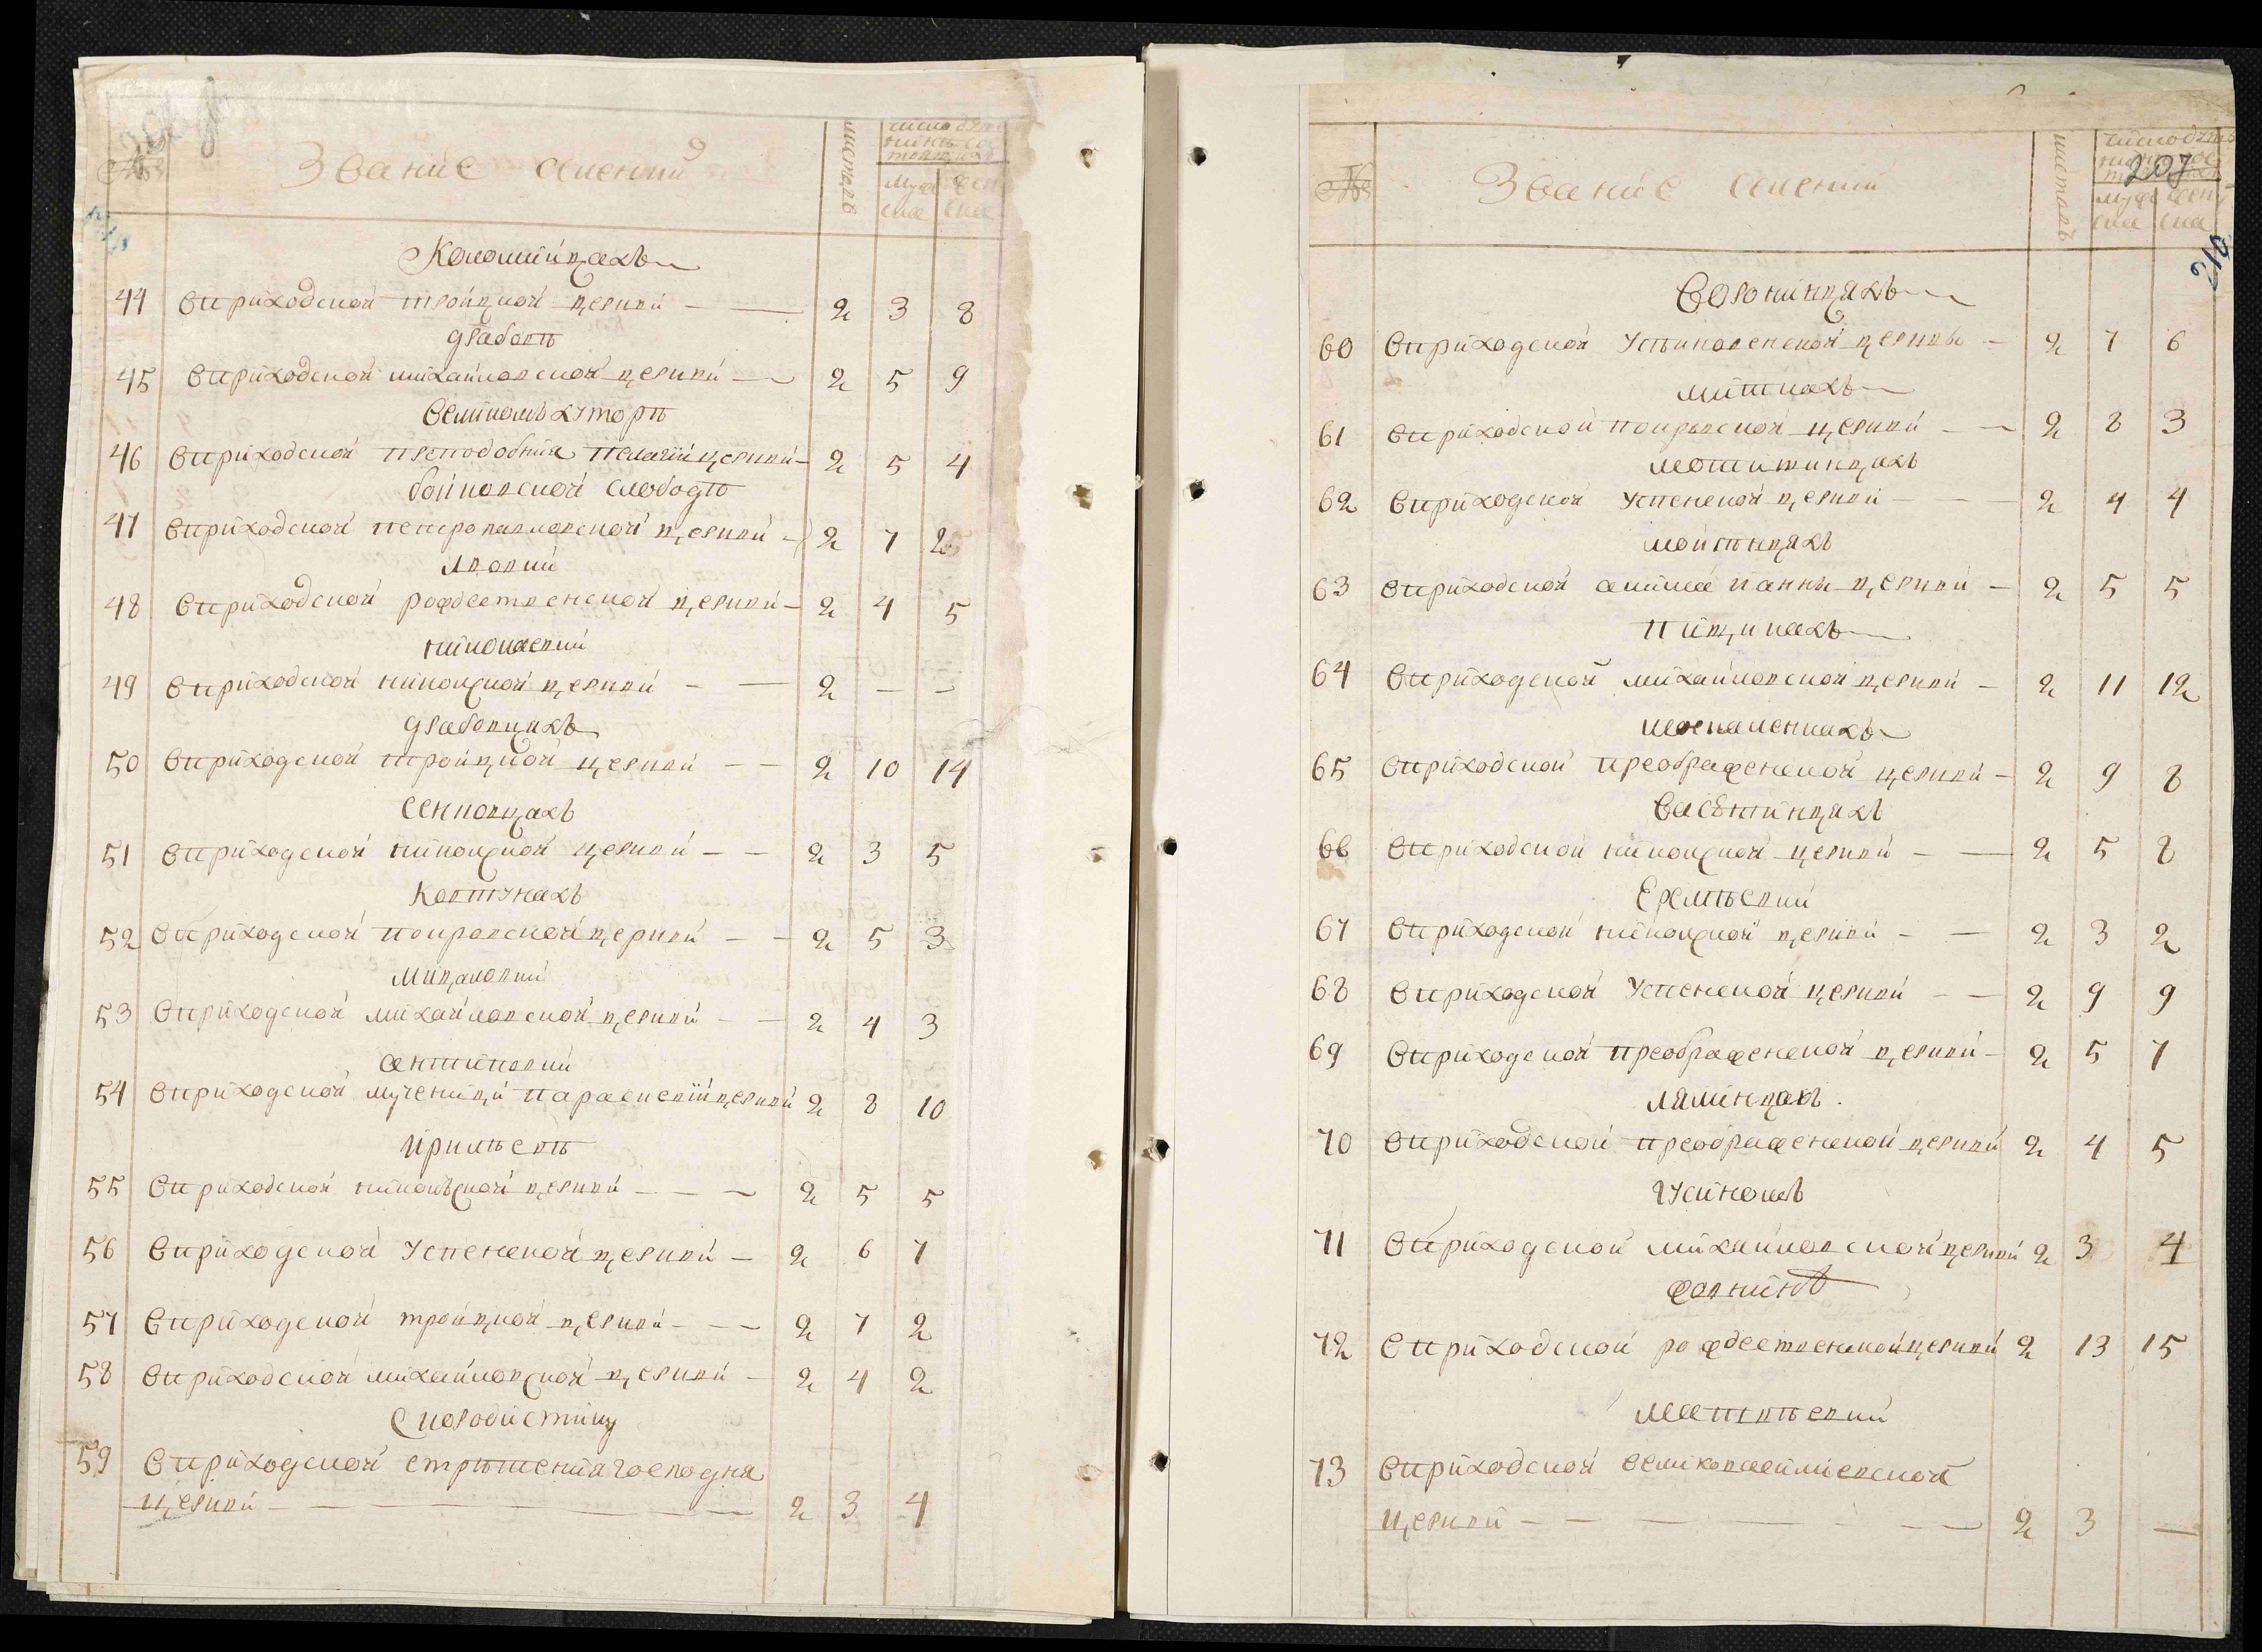 №
Звание селений
шпиталъ
число
Муже
ска
Жен
ска
Коломийцахъ
44 Вприходской троицкой церкви — 2 3 8
драбовѣ
45 Вприходской михайловской церкви — 2 5 9
Великомъ хуторѣ
46 Вприходской преподобния пелагіи церкви — 2 5 4
бойковской слободѣ
47 Вприходской петропавловской церкви — 2 7 2
48 Вприходской рождественской церкви — 2 4 5
николаевки
49 Вприходской николской церкви — 2 — —
драбовцахъ
50 Вприходской троицкой церкви — 2 10 14
Сенковцахъ
51 Вприходской николской церкви — 2 3 5
Ковтунахъ
52 Вприходской покровской церкви — 2 5 3
Мицаловки
53 Вприходской михайловской церкви — 2 4 3
антиповки
54 Вприходской мученицы параскевіи церкви 2 8 10
ирклѣевѣ
55 Вприходской николъской церкви — 2 5 5
56 Вприходской Успенской церкви — 2 6 7
57 Вприходской троицкой церкви — 2 7 2
58 Вприходской михайловской церкви — 2 4 2
Скородистику
59 Вприходской стрѣтенія господня
церкви — 2 3 4
207
210
№
Звание селений
шпиталъ
число
Муже
ска
Жен
ска
Воронинцахъ
60 Вприходской Успеновской церквы — 2 7 6
митлахъ
61 Вприходской покровской церкви — 2 8 3
62 Вприходской Успенской церкви — 2 4 4
мойсѣнцахъ
63 Вприходской акима ианны церкви — 2 5 5
пищикахъ
64 Вприходской михайловской церкви — 2 11 12
москаленкахъ
65 Вприходской преображенской церкви — 2 9 8
Васютинцахъ
66 Вприходской николской церкви — 2 5 8
Еремѣевки
67 Вприходской николской церкви — 2 3 2
68 Вприходской Успенской церкви — 2 9 9
69 Вприходской преображенской церкви — 2 5 7
лялинцахъ
70 Вприходской преображенской церкви 2 4 5
гусиномъ
71 Вприходской михайловской церкви 2 3 4
жовнинѣ
72 Вприходской рождественской церкви 2 13 15
матвѣевки
73 Вприходской
церкви — 2 3 —